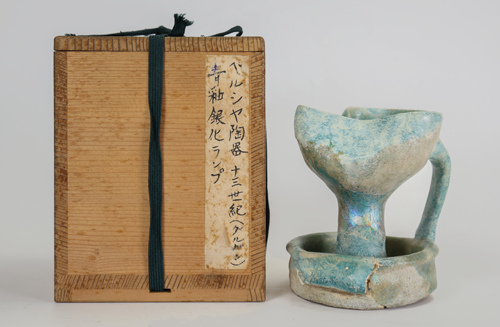 ペルシヤ陶器 十三世紀(グルガン)
青釉銀化ランプ